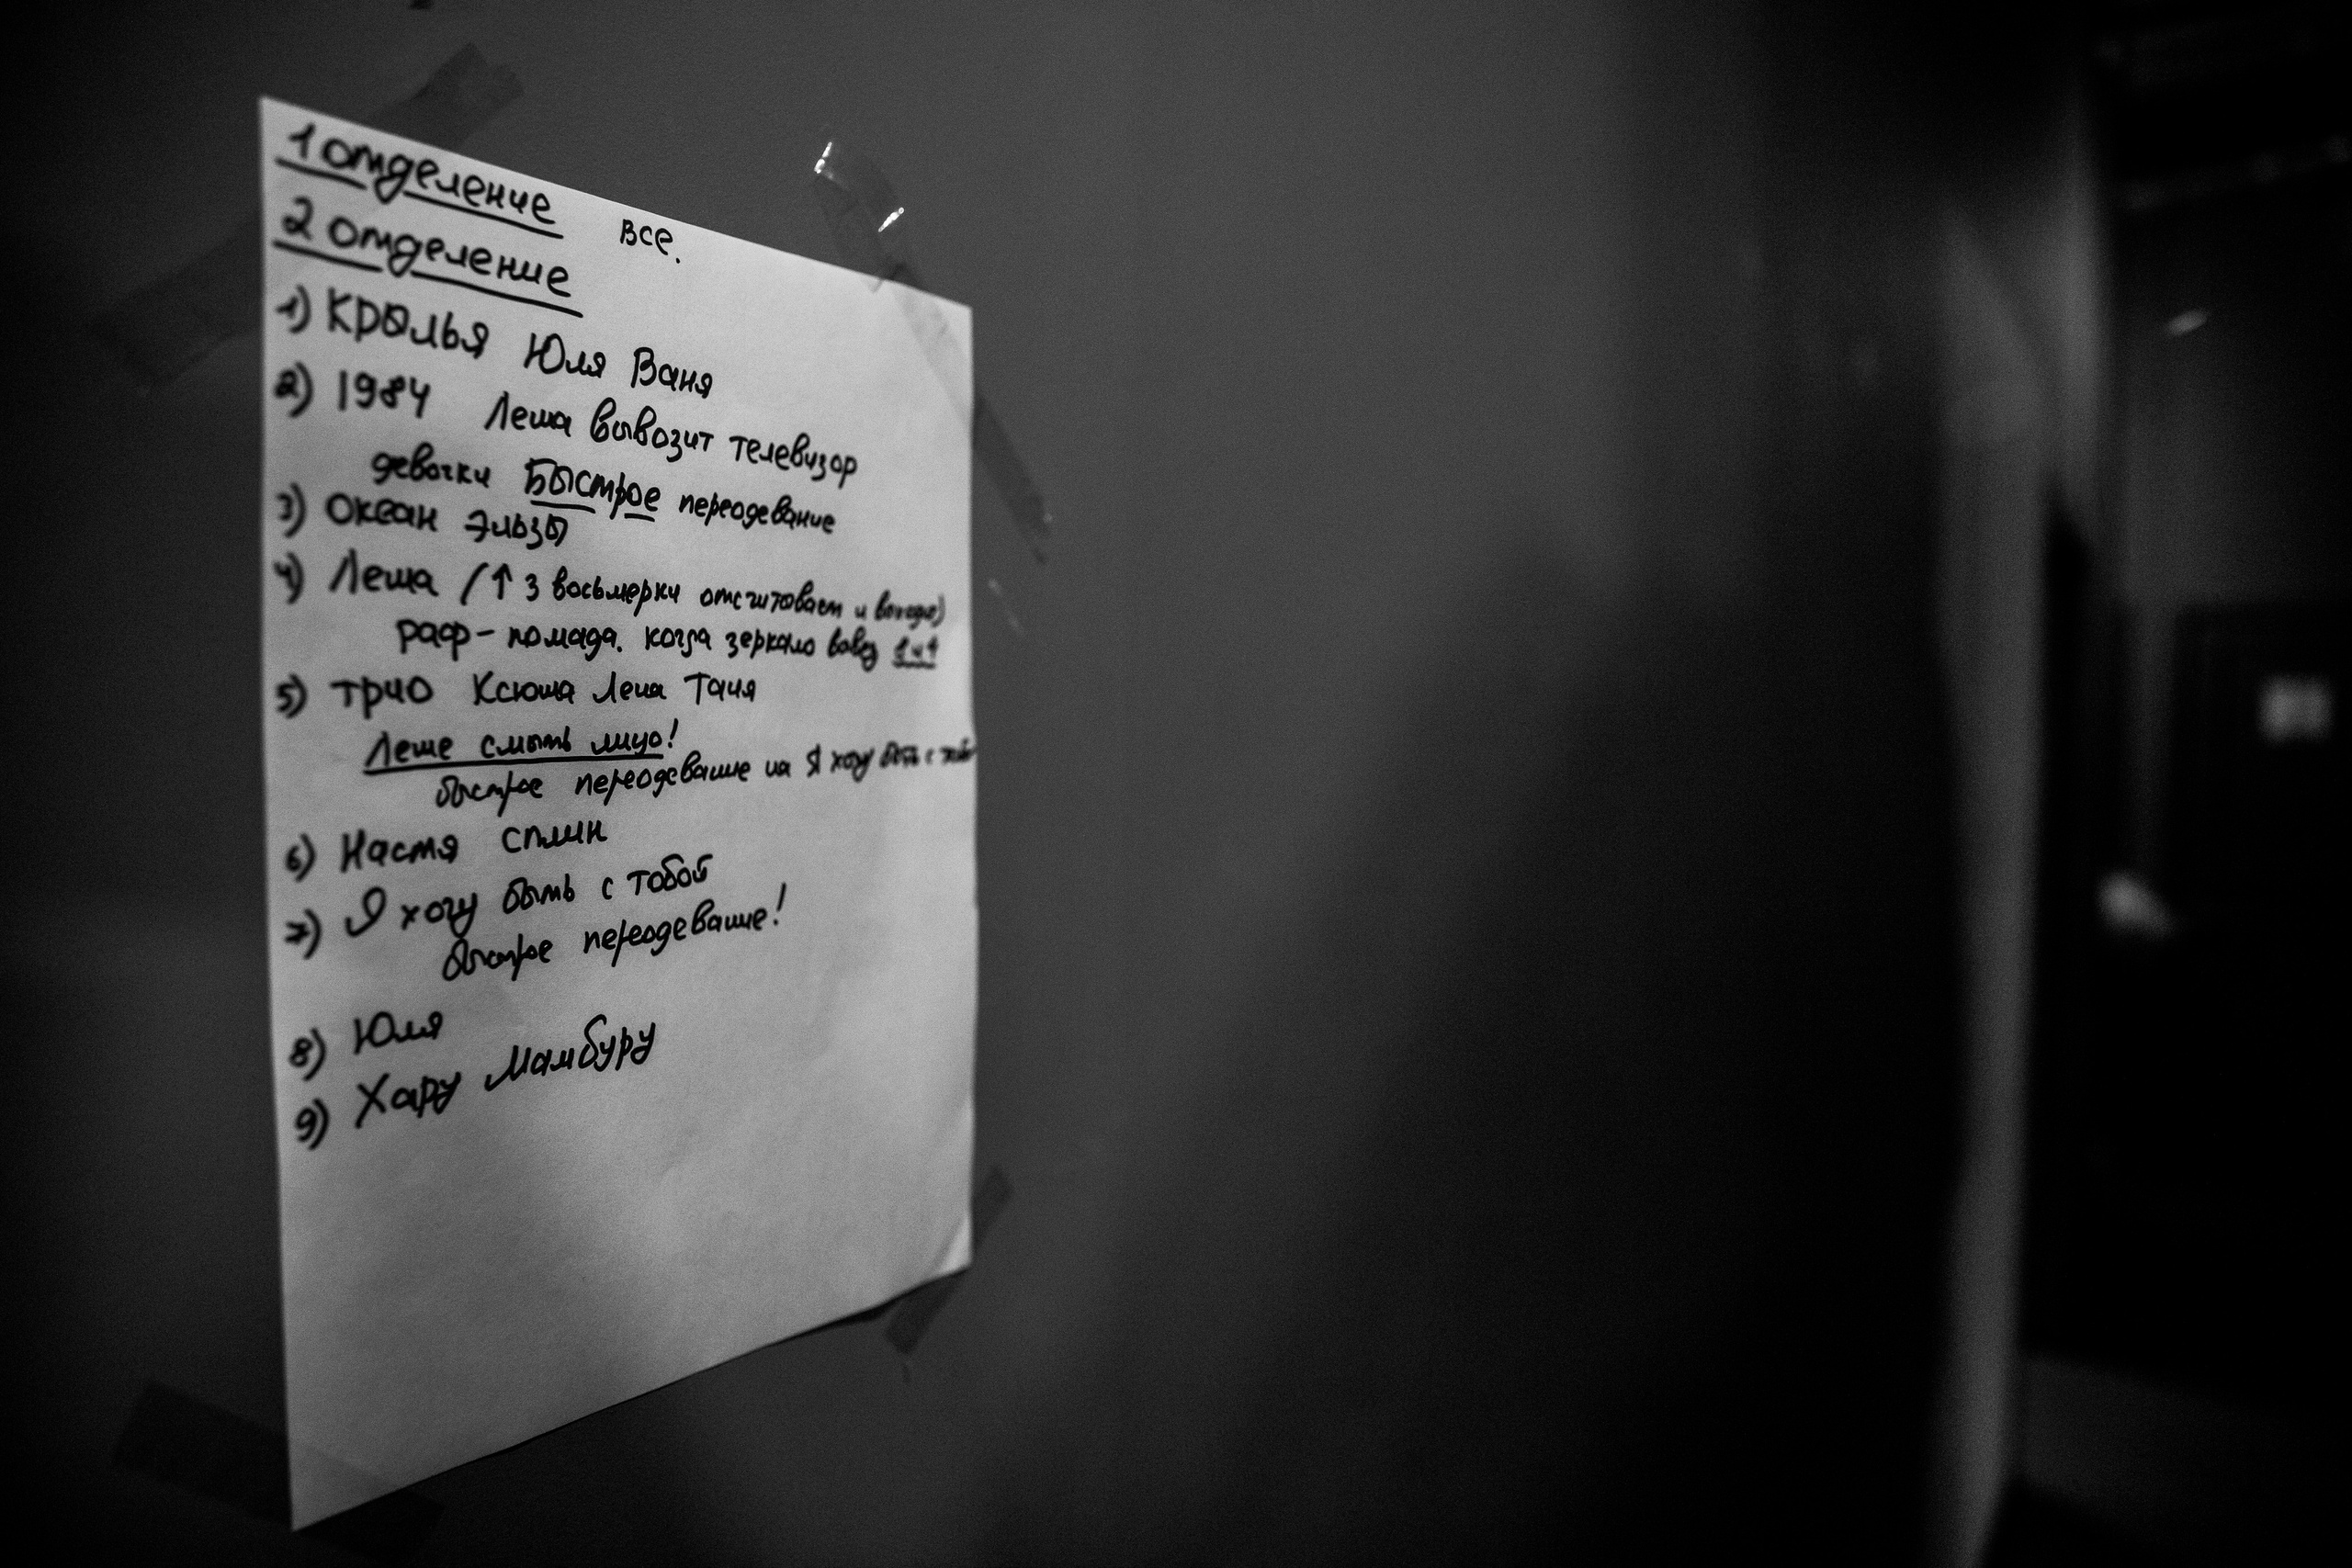 1 отделение все.
2 отделение
1) Крылья Юля Ваня
2) 1984 Леша вывозит телевизор
девочки Быстрое переодевание
3) Океан Эльзы
4) Леша (↑ 3 восьмерки отсчитовает и
раф - помада. когда зеркало
5) трио Ксюша Лена Таня
Леше смыть лицо!
быстрое переодевание на Я хочу быть с
6) Настя Сплин
7) Я хочу быть с тобой
быстрое переодевание!
8) Юля
9) Хару Мамбуру